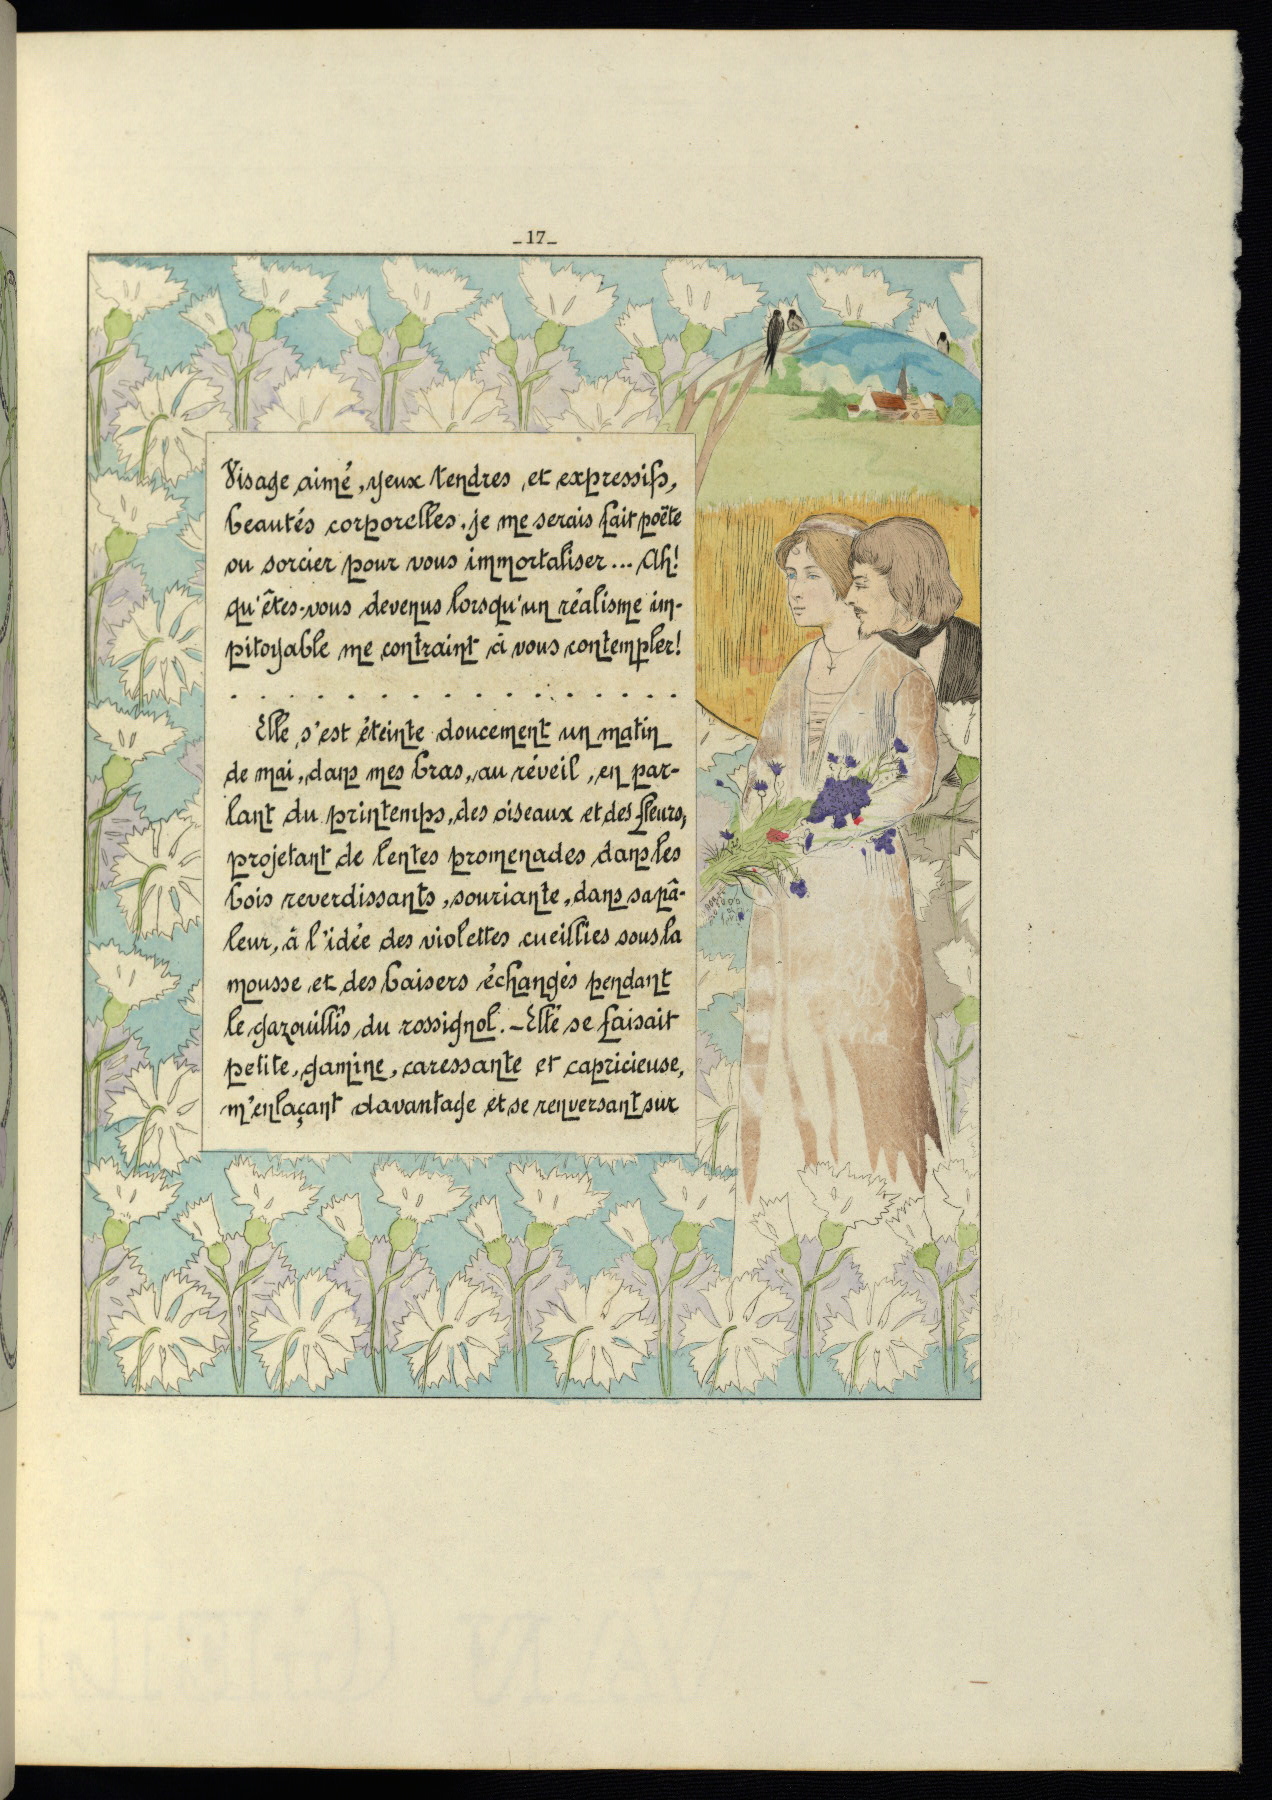 _17_
Visage aimé, yeux tendres, et expressifs,
beautés corporelles, je me serais fait poète
ou sorcier pour vous immortaliser... Ah!
qu'êtes-vous devenus lorsqu'un réalisme im-
pitoyable me contraint à vous contempler!
. . . . . . . . . . . . . . . .
Elle s'est éteinte doucement un matin
de mai, dans mes bras, au réveil, en par-
lant du printemps, des oiseaux et des fleurs,
projetant de lentes promenades dans les
bois reverdissants, souriante, dans sa pâ-
leur, à l'idée des violettes cueillies sous la
mousse et des baisers échangés pendant
le gazouillis du rossignol. _Elle se faisait
petite, gamine, caressante et capricieuse,
m'enlaçant davantage et se renversant sur